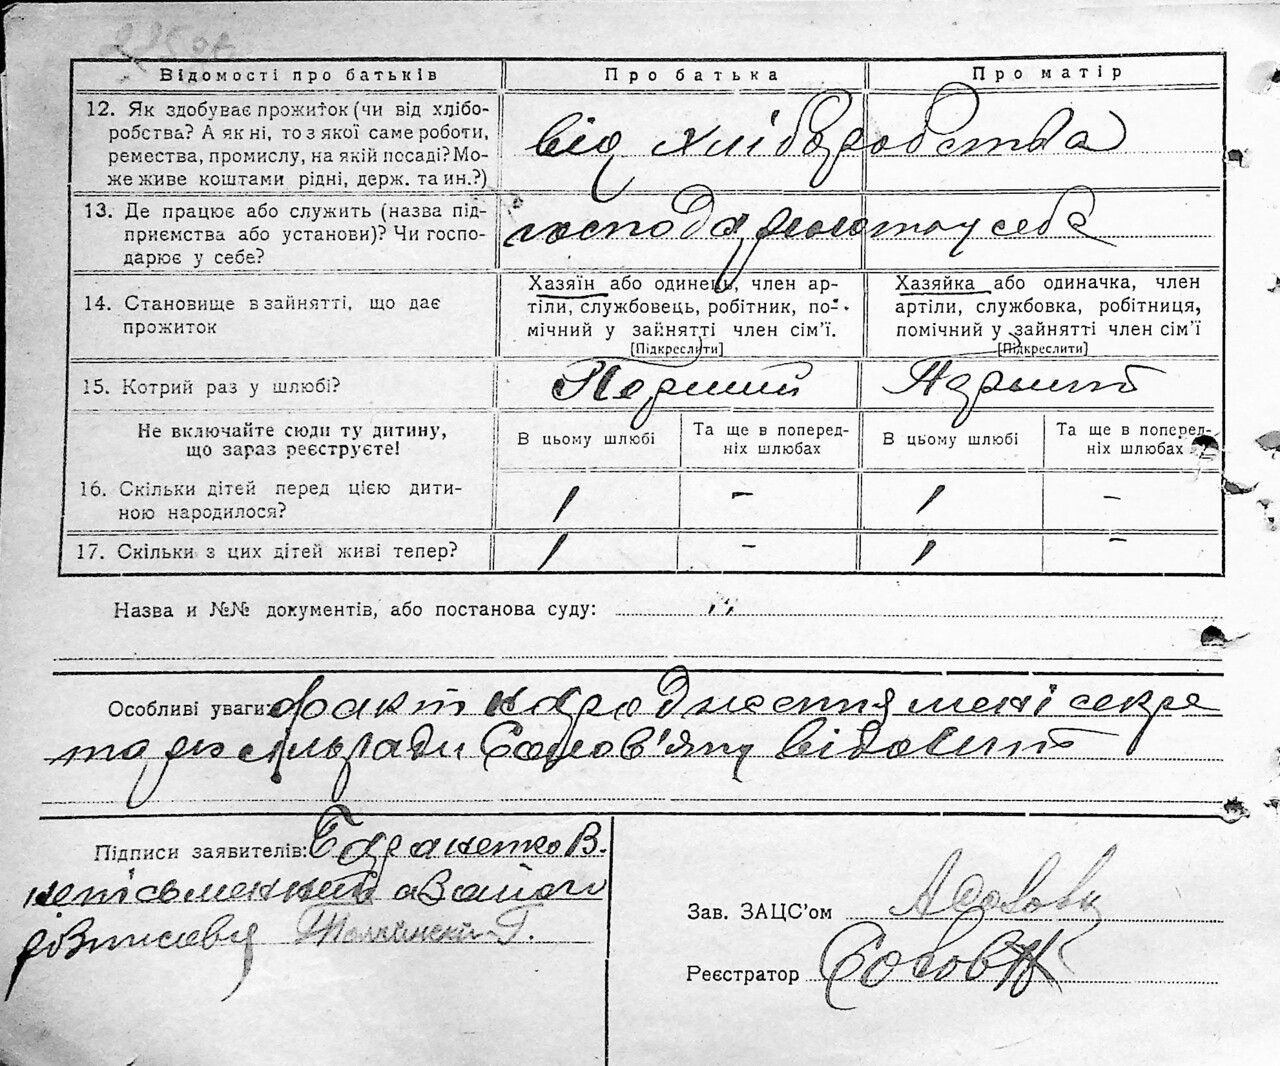 Відомості про батьків Про батька Про матір
12. Як здобуває прожиток (чи від хлібо-
робства? А як ні, то з якої саме роботи,
ремества, промислу, на якій посаді? Мо-
же живе коштами рідні, держ. та ин.?)
від хліборобства
13. Де працює або служить (назва під-
приємства або установи)? Чи госпо-
дарює у себе?
господарюють у себе
14. Становище в зайнятті, що дає
прожиток
Хазяїн або одинець, член ар-
тіли, службовець, робітник, по-
мічний у зайнятті член сім’ї.
[Підкреслити]
Хазяйка або одиначка, член
артіли, службовка, робітниця,
помічний у зайнятті член сім’ї
[Підкреслити]
15. Котрий раз у шлюбі? Перший Перший
Не включайте сюди ту дитину,
що зараз реєструєте!
В цьому шлюбі
Та ще в поперед-
ніх шлюбах
В цьому шлюбі
Та ще в поперед-
ніх шлюбах
16. Скільки дітей перед цією дити-
ною народилося?
1 - 1 -
17. Скільки з цих дітей живі тепер? 1 - 1 -
Назва и №№ документів, або постанова суду:
Особливі уваги: факт народження мені секре
тарю сільради Солов'яну відомий
Підписи заявителів: Бараненко В.
неписьменний а за його
розписався
Зав. ЗАЦС’ом
Реєстратор